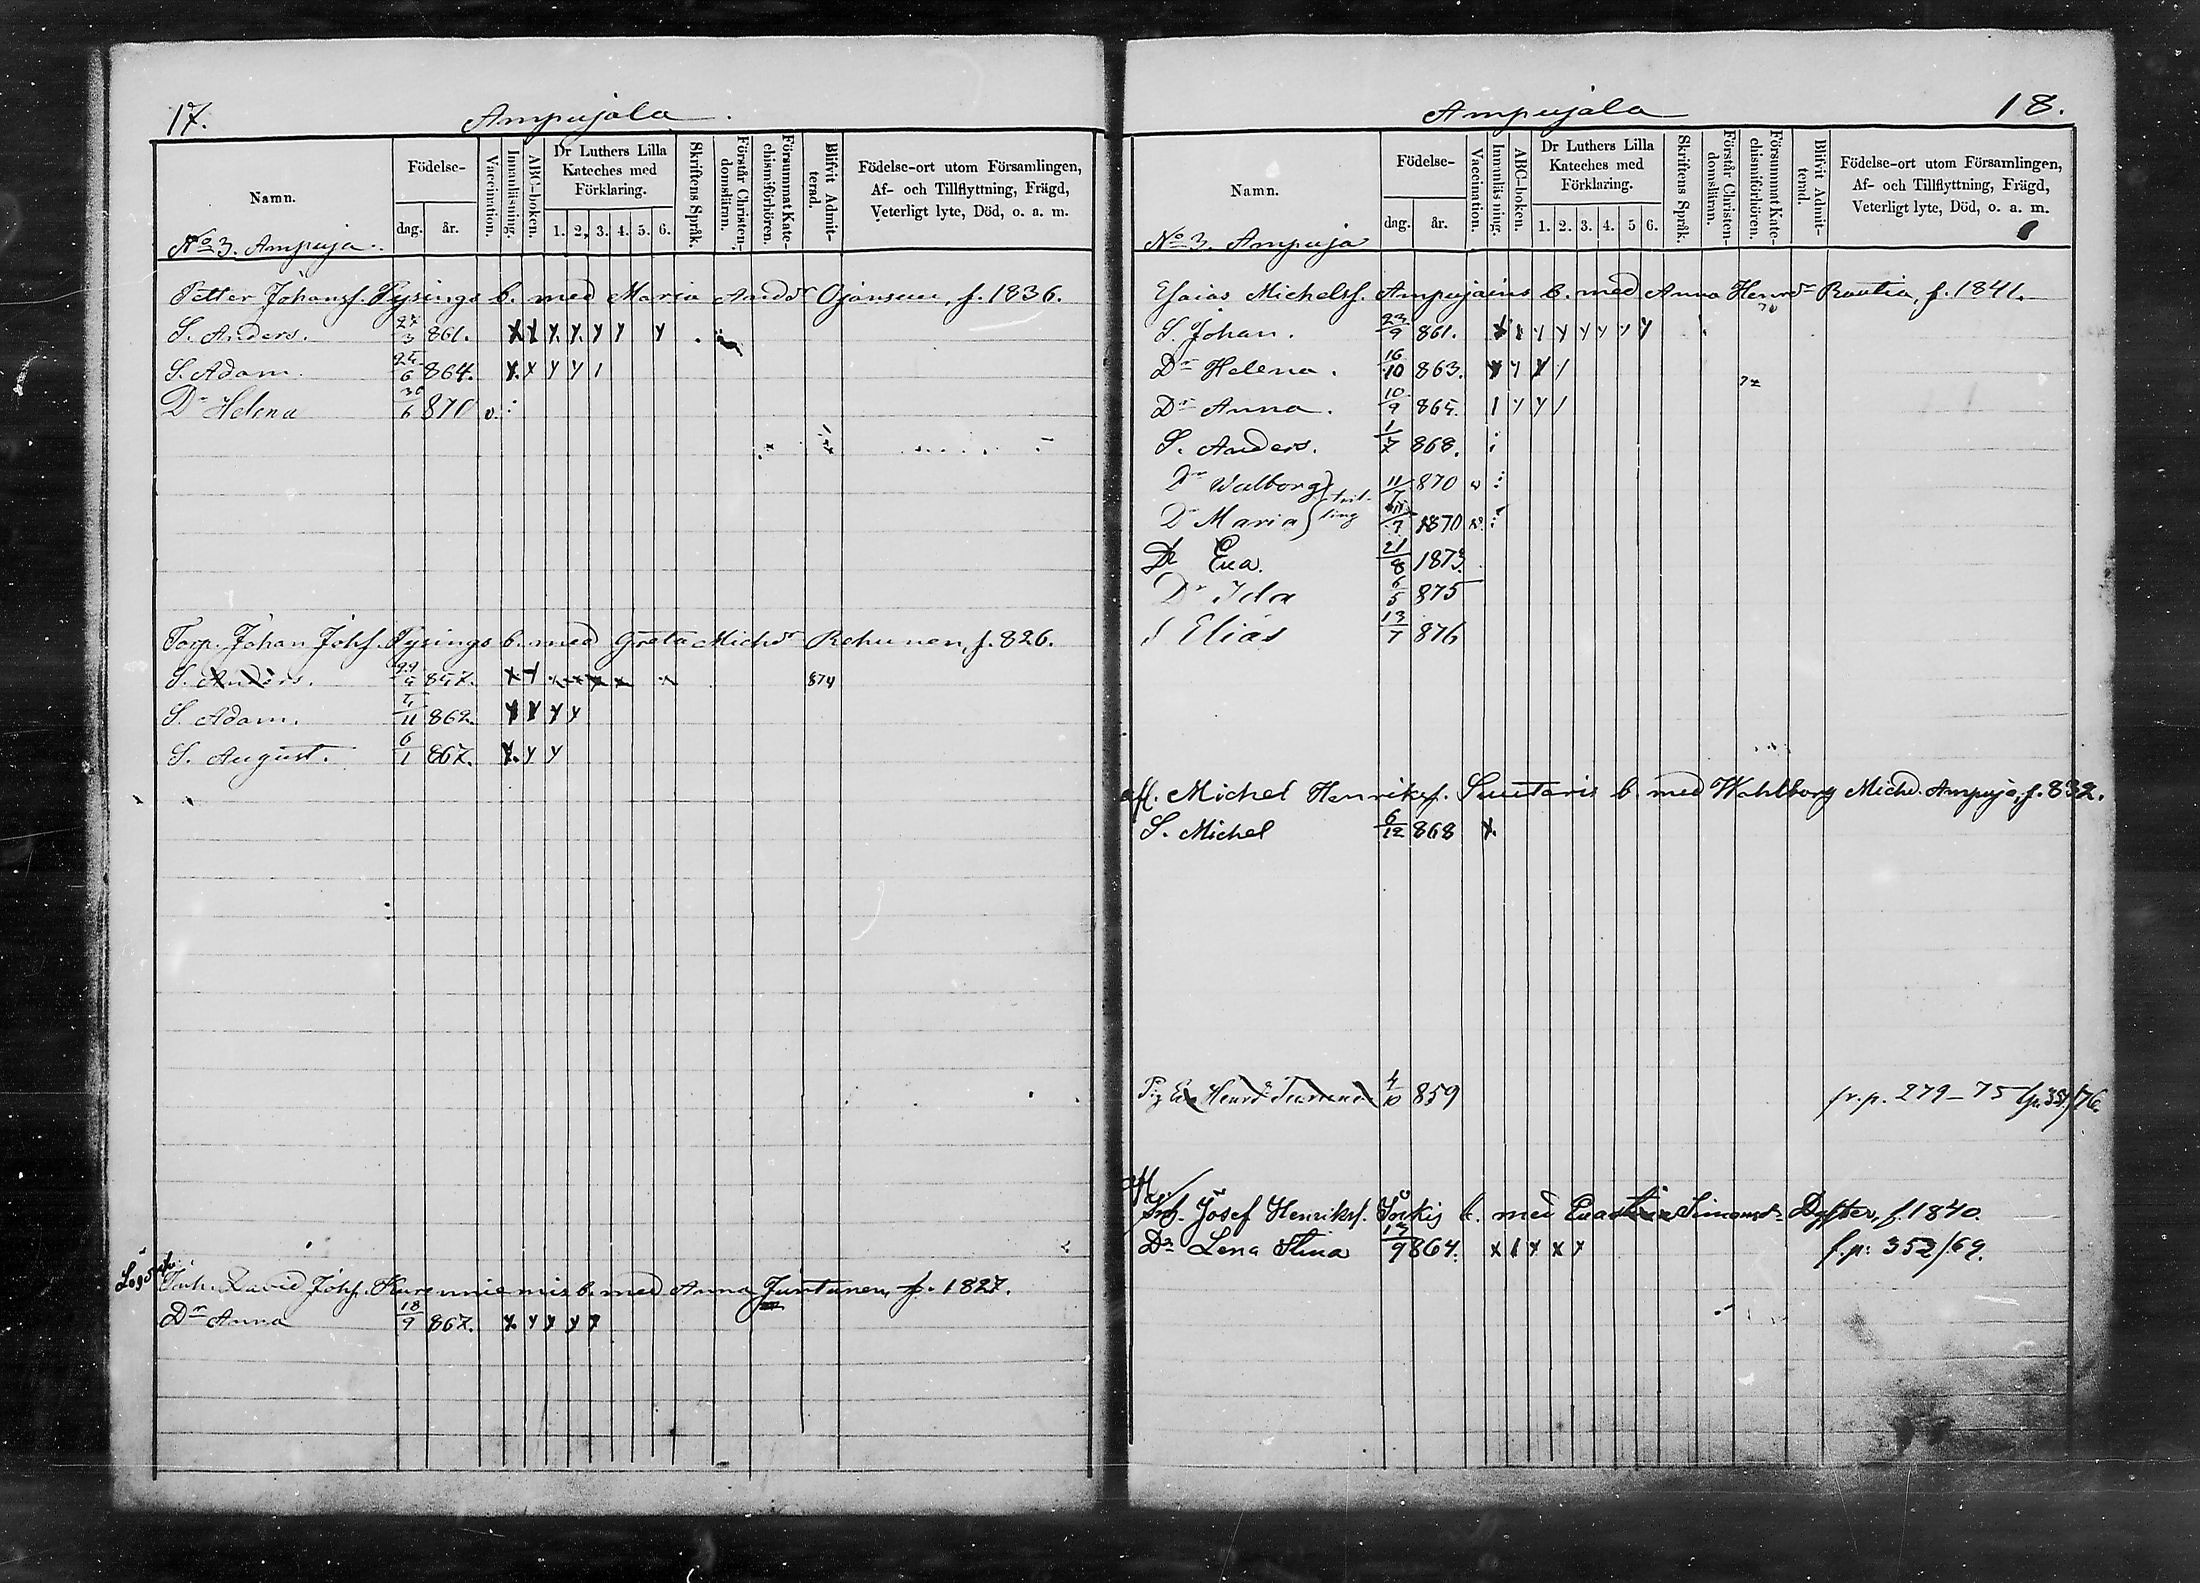 17. Ampujala.
Namn. Födelse- dag. år. Vaccination. Innanläsning. ABC-boken. Dr Luthers Lilla Kateches med Förklaring. 1. 2. 3. 4. 5. 6. Skriftens Språk. Förstår Christendomsläran. Försummat Katechismiförhören. Blifvit Admitterad. Födelse-ort utom Församlingen, Af- och Tillflyttning, Frägd, Veterligt lyte, Död, o. a. m.
No 3. Ampuja.
Petter Johansf. Pysings b. med Maria Andsdr Ojansuu, f. 1836.
S. Anders. 27/3 861.
S. Adam. 24/6 864.
Dr Helena /6 870 v.
Torp. Johan Johsf. Pysings b. med Greta Michdr Rehunen, f. 826.
S. Anders. 857. 874
S. Adam. /11 862.
S. August. 6/1 867.
Inh. David Johsf. Kurenniemis b. med Anna Juntunen, f. 1827.
Dr Anna 18/9 867.
Ampujala 18.
Namn. Födelse- dag. år. Vaccination. Innanläsning. ABC-boken. Dr Luthers Lilla Kateches med Förklaring. 1. 2. 3. 4. 5 6. Skriftens Språk. Förstår Christendomsläran. Försummat Katechismiförhören. Blifvit Admitterad. Födelse-ort utom Församlingen, Af- och Tillflyttning, Frägd, Veterligt lyte, Död, o. a. m.
No 3. Ampuja
Esaias Michelsf. Ampujains b. med Anna Henrdr Rautia, f. 1841.
S. Johan. 23/9 861.
Dr Helena. 16/10 863.
Dr Anna. 10/9 865.
S. Anders. 1/7 868.
Dr Walborg 11/7 870 v
Dr Maria tvilling /7 1870 v.
Dr Eva. 21/8 1873.
Dr Ida 6/5 875
S Elias 13/7 876
afl. Michel Henriksf. Suutaris b. med Wahlborg Michd. Ampuja, f. 832.
S. Michel 6/12 868
Pig Eva Henrd 4/10 859 fr. p. 279-75 /76
afl.
Inh. Josef Henriksf. b. med Eva Simonsdr Dyster, f. 1840.
Dr Lena Stina 13/9 864. f. p. 352/69.